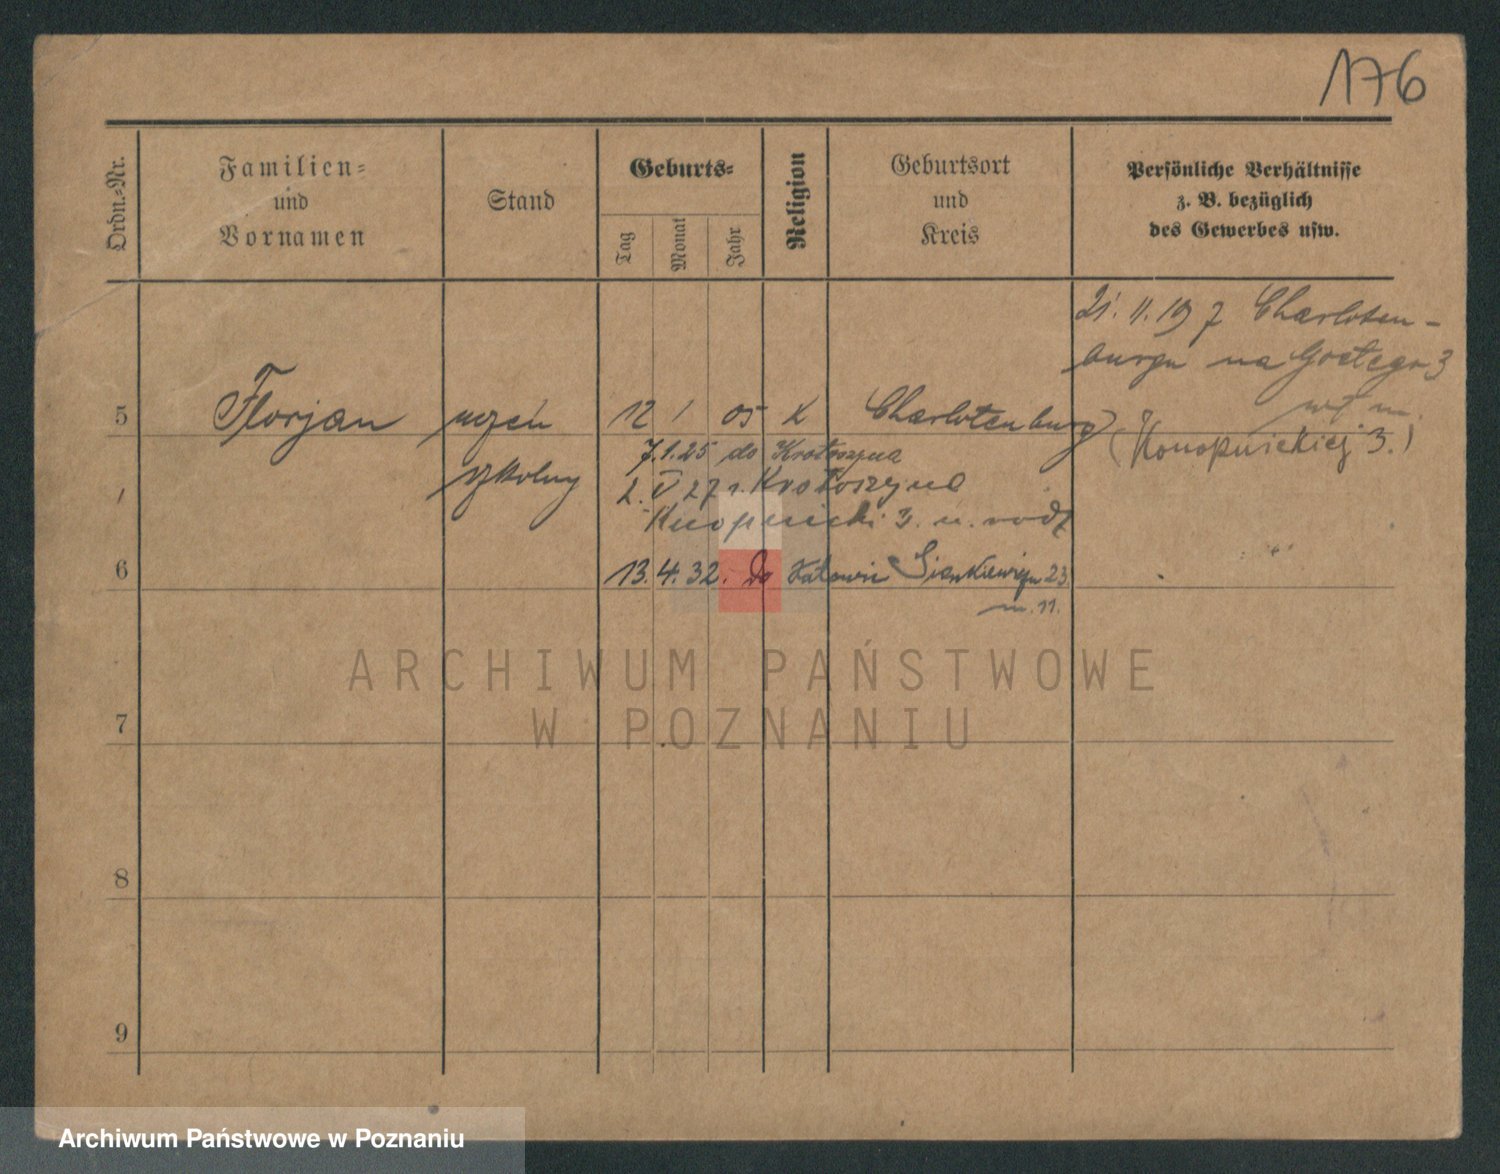 176
Ordn.=Nr.
Familien=
und
Vornamen
Stand
Geburts=
Tag
Monat
Jahr
Religion
Geburtsort
und
Kreis
Persönliche Verhältnisse
z. B. bezüglich
des Gewerbes usw.
21. 11. 19 z Charloten-
burga na Goetego 3
5 Florjan uczeń 12 1 05 K Charlotenburg
szkolny
(Konopnickiej 3.)
7.1.25 do Krotoszyna
2. V 27 z Krotoszyna
3. u. rodz
6
13. 4. 32. do Katowic Sienkiewicza 23
m. 11.
7
8
9
ARCHIWUM PAŃSTWOWE
W POZNANIU
Archiwum Państwowe w Poznaniu